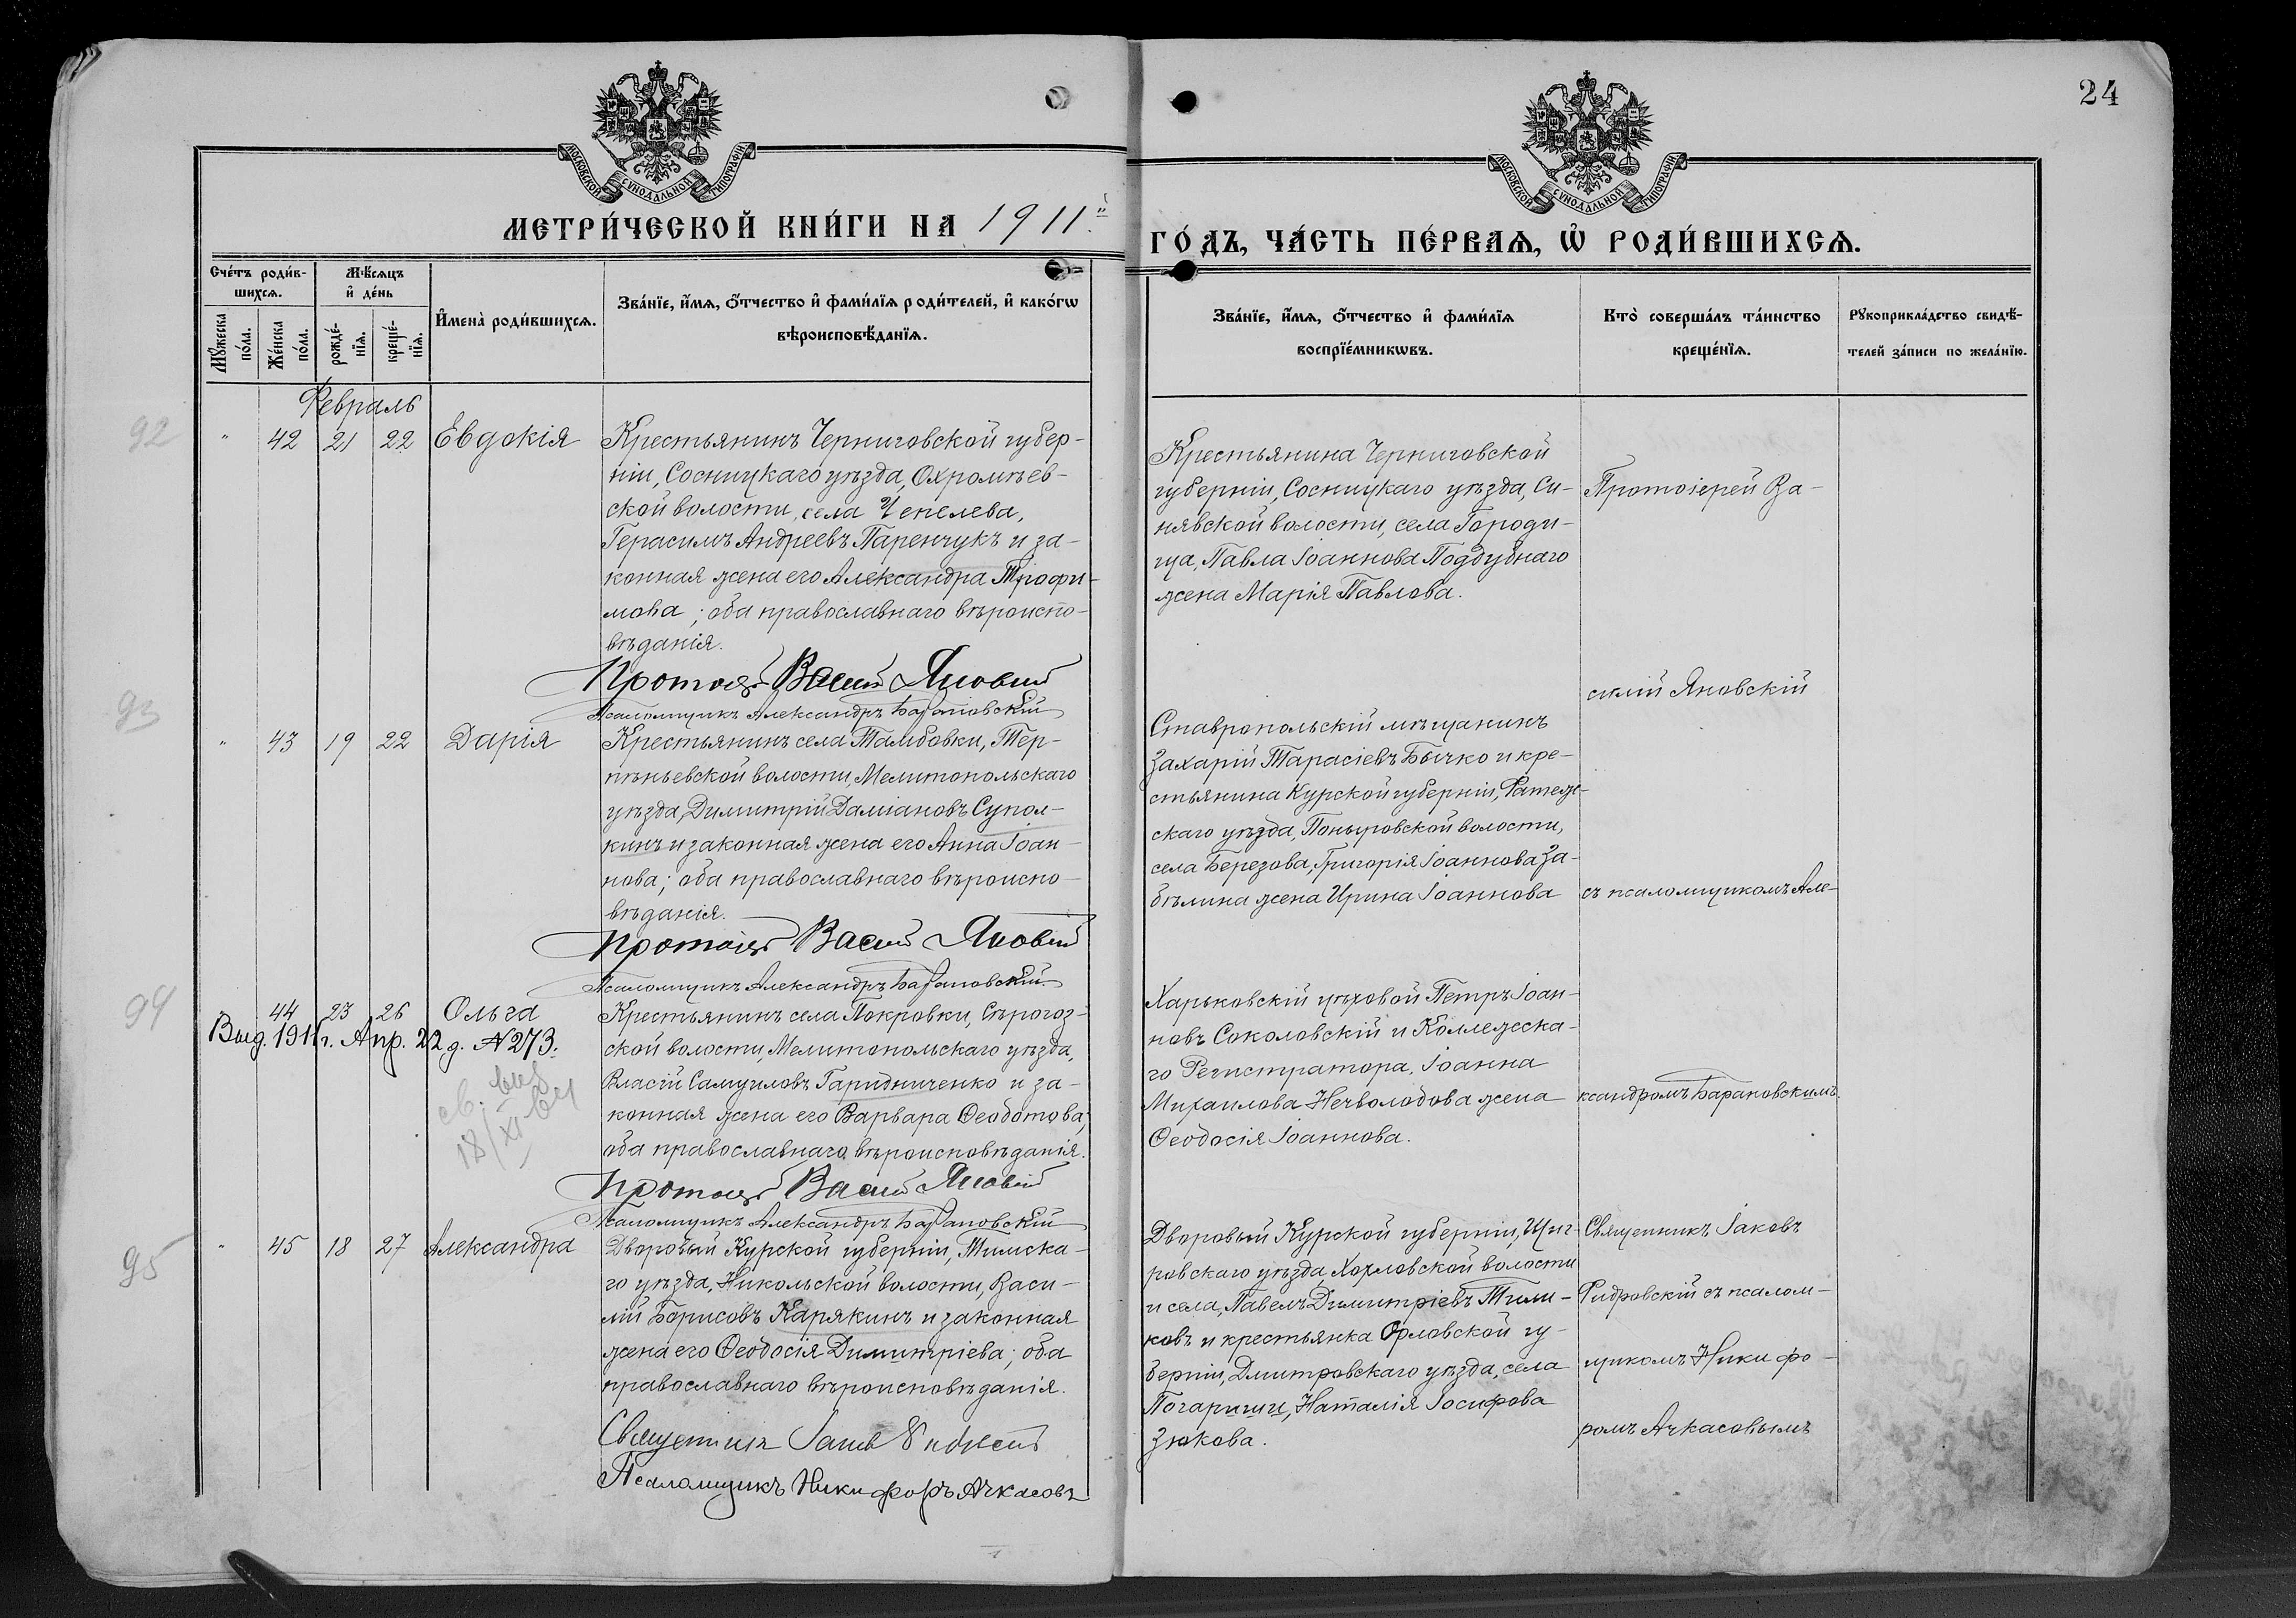 24
МОСКОВСКОЙ СУНОДАЛЬНОЙ ТИПОГРАФІИ
МОСКОВСКОЙ СУНОДАЛЬНОЙ ТИПОГРАФІИ
МЕТРИ́ЧЕСКОЙ КНИ́ГИ НА 1911й
ГО́ДЪ, ЧА́СТЬ ПЕ́РВАЯ, Ѡ РОДИ́ВШИХСЯ.
Сче́тъ роди́в-
шихся.
Мꙋжеска по́ла.
Же́нска по́ла.
Мѣ́сяцъ
и҆ де́нь
рожде́-
нїя.
креще́-
нїя.
И҆мена̀ роди́вшихся.
Зва́нїе, и҆́мя, ѻ҆́тчество и҆ фами́лїя роди́телей, и҆ како́гѡ
вѣроисповѣ́данїя.
Зва́нїе, и҆́мя, ѻ҆́тчество и҆ фами́лїя
воспрїе́мникѡвъ.
Кто̀ соверша́лъ та́инство
креще́нїя.
Рꙋкоприкла́дство свидѣ́-
телей за́писи по жела́нїю.
Февраль
92
" 42 21 22 Евдокія
Крестьянинъ Черниговской губер-
ніи, Сосницкаго уѣзда, Охромѣев-
ской волости, села Чепелева,
Герасимъ Андреевъ Паренчукъ и за-
конная жена его Александра Трофи-
мова; оба православнаго вѣроиспо-
вѣданія.
Протоіер Васил Яновскій
Псаломщикъ Александръ Барановскій
Крестьянина Черниговской
губерніи, Сосницкаго уѣзда, Си-
нявской волости, села Городи-
ща, Павла Іоаннова Поддубнаго
жена Марія Павлова.
Протоіерей Ва-
силій Яновскій
93
" 43 19 22 Дарія
Крестьянинъ села Тамбовки, Тер-
пѣньевской волости, Мелитопольскаго
уѣзда, Димитрій Даміановъ Супол-
кинъ и законная жена его Анна Іоан-
нова; оба православнаго вѣроиспо-
вѣданія.
Протоіер Васил Яновскій
Псаломщикъ Александръ Барановскій
Ставропольскій мѣщанинъ
Захарій Тарасіевъ Бычко и кре-
стьянина Курской губерніи, Фатеж-
скаго уѣзда, Поныровской волости,
села Березова, Григорія Іоаннова За-
бѣлина жена Ирина Іоаннова
съ псаломщикомъ Але-
94
44 23 26 Ольга
Выд. 1911 г. Апр. 22 д. №273.
18/XI
Крестьянинъ села Покровки, Сѣрогоз-
ской волости, Мелитопольскаго уѣзда,
Власій Самуиловъ Гаридниченко и за-
конная жена его Варвара Ѳеодотова;
оба православнаго вѣроисповѣданія.
Протоіер Васил Яновскій
Псаломщикъ Александръ Барановскій
Харьковскій цѣховой Петръ Іоан-
новъ Соколовскій и Коллежска-
го Регистратора, Іоанна
Михаилова Нечволодова жена
Ѳеодосія Іоаннова.
ксандромъ Барановскимъ.
95
" 45 18 27 Александра
Дворовый Курской губерніи, Тимска-
го уѣзда, Никольской волости, Васи-
лій Борисовъ Карякинъ и законная
жена его Ѳеодосія Димитріева; оба
православнаго вѣроисповѣданія.
Священникъ Іаковъ
Псаломщикъ Никифоръ Ачкасовъ
Дворовый Курской губерніи, Щиг-
ровскаго уѣзда, Хохловской волости
и села, Павелъ Димитріевъ Тили-
ковъ и крестьянка Орловской гу-
берніи, Дмитровскаго уѣзда, села
Погарищи, Наталія Іосифова
Зюкова.
Священникъ Іаковъ
Фидровскій съ псалом-
щикомъ Никифо-
ромъ Ачкасовымъ